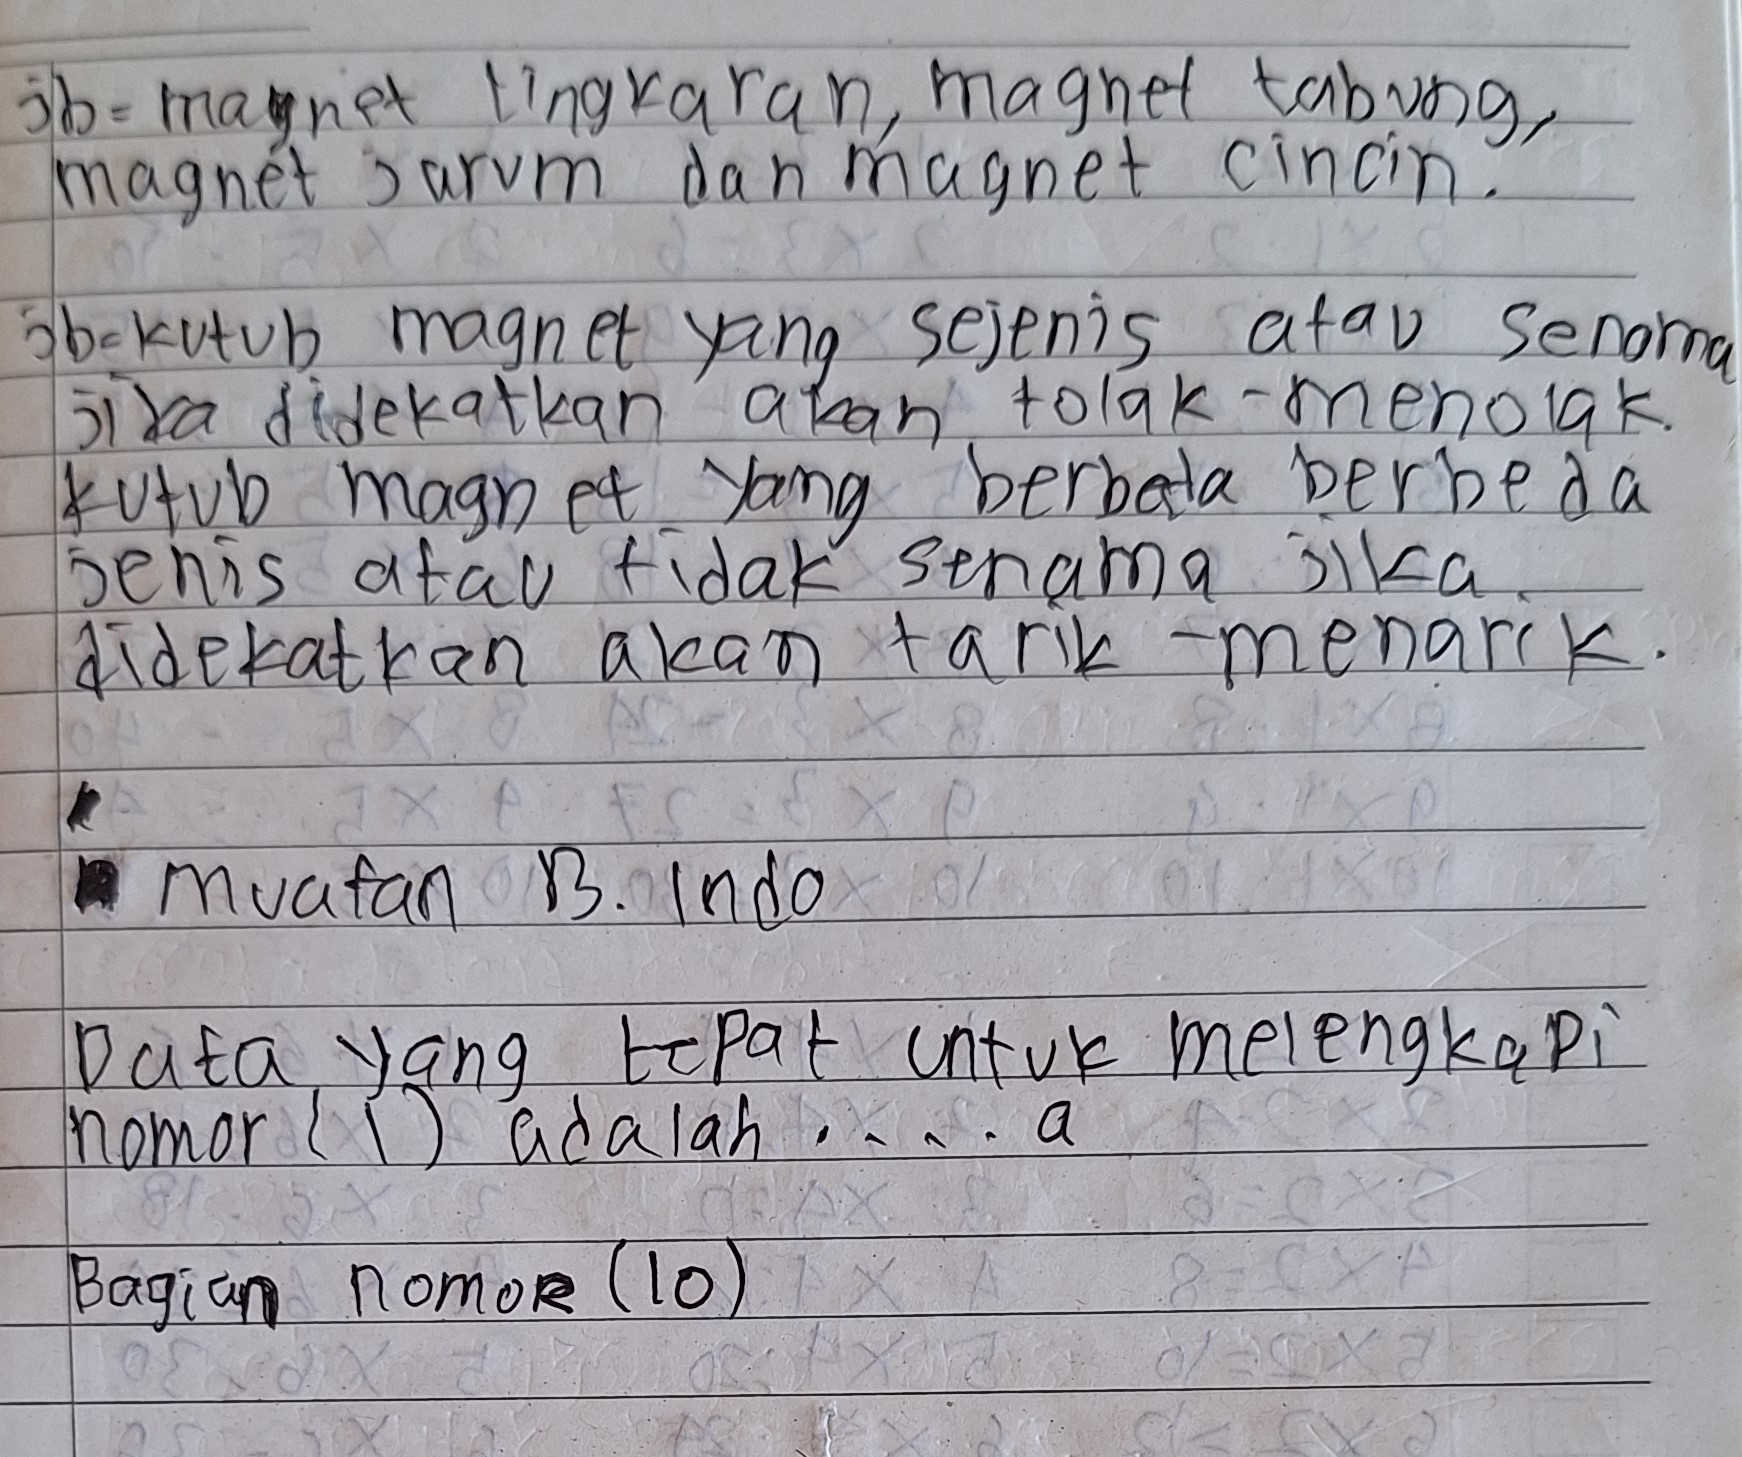 jb = magnet lingkaran, magnet tabung,
magnet jarum dan magnet cincin.
jb = kutub magnet yang sejenis atau senama
jika didekatkan akan tolak-menolak.
kutub magnet yang berbeda berbeda
jenis atau tidak senama jika
didekatkan akan tarik-menarik.
Muatan B. Indo
Data yang tepat untuk melengkapi
nomor (1) adalah ..... a
Bagian nomor (10)